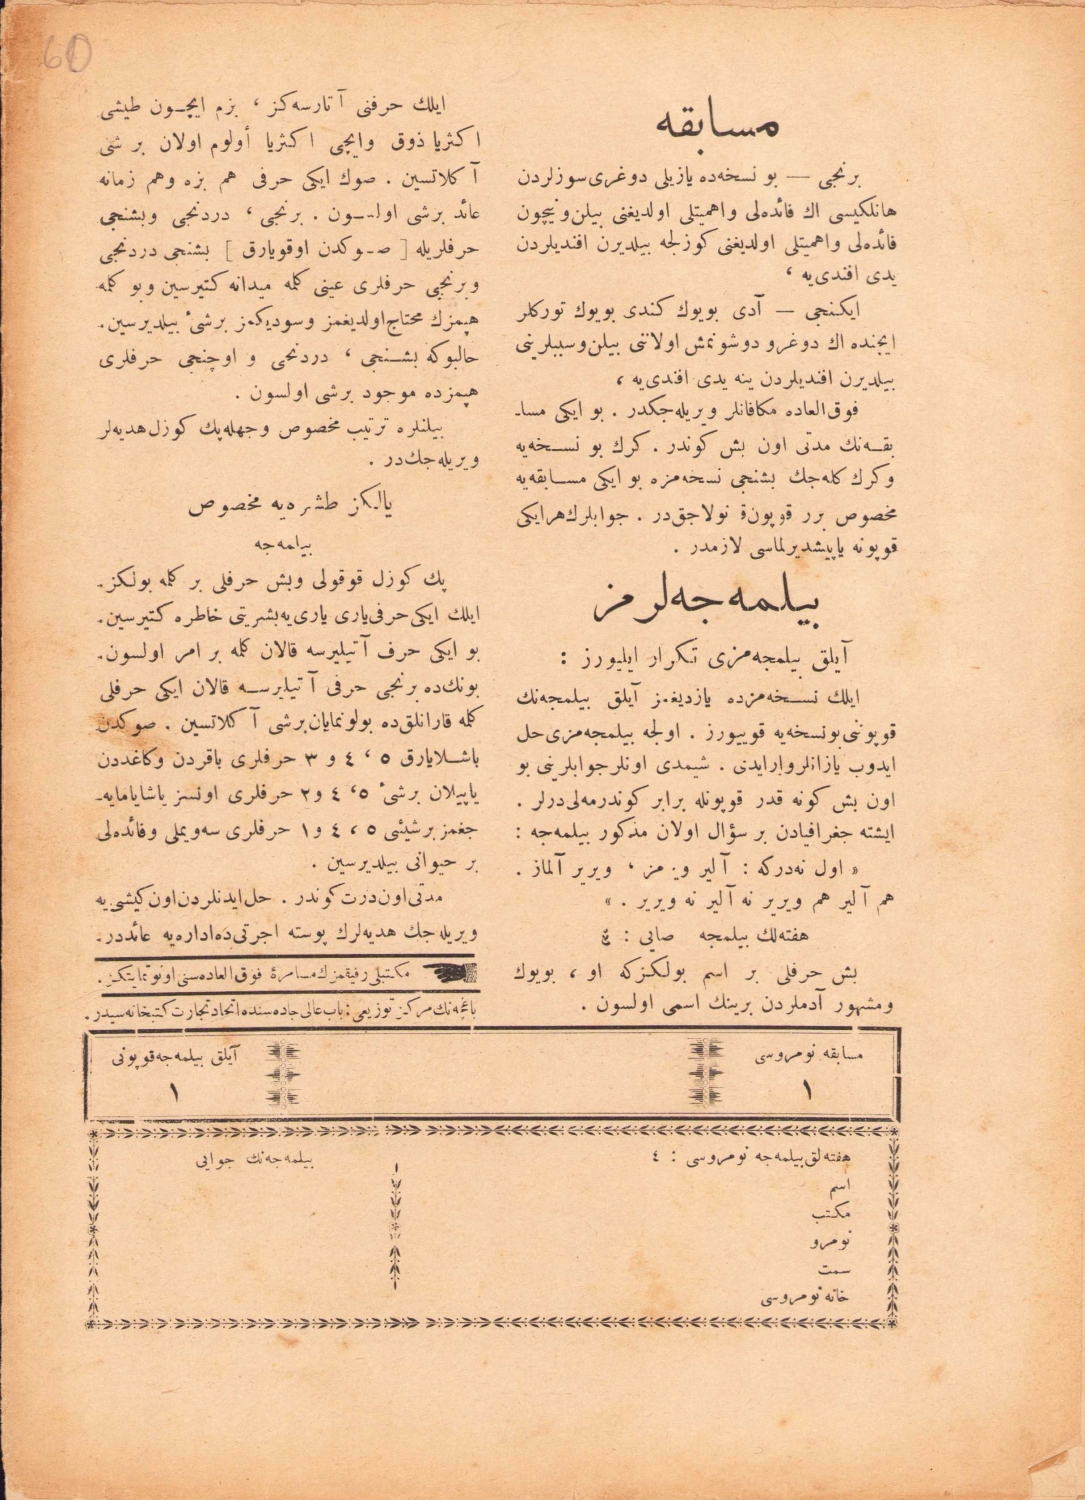 مسابقه
برنجی — بو نسخه‌ده یازیلی دوغری سوزلردن
هانکیسی اك فائده‌لی واهمیتلی اولدیغنی بیلن ونیچون
فائده‌لی واهمیتلی اولدیغنی كوزلجه بیلدیرن افندیلردن
یدی افندی‌یه ،
ایكنجی — آدی بویوك كندی بویوك توركلر
ایچنده اك دوغرو دوشونمش اولاننی بیلن وسببلرینی
بیلدیرن افندیلردن ینه یدی افندی‌یه ،
فوق‌العاده مكافاتلر ویریله‌جكدر . بو ایكی مسا‌ـ
بقــه‌نك مدتی اون بش كوندر . كرك بو نسـخه‌یه
وكرك كله‌جك بشنجی نسخه‌مزه بو ایكی مسـابقه‌یه
مخصوص برر قوپون قونولاجق‌در . جوابلرك هرایكی
قوپونه یاپیشدیرلماسی لازمدر .
بیلمه‌جه‌لرمز
آیلق بیلمجه‌مزی تكرار ایلیورز :
ایلك نسـخه‌مزده یازدیغمز آیلق بیلمجه‌نك
قوپوننی بونسخه‌یه قویییورز . اولجه بیلمجه‌مزی حل
ایدوب یازانلرواریدی . شیمدی اونلرجوابلرینی بو
اون بش كونه قدر قوپونله برابر كوندرمه‌لی‌درلر .
ایشته جغرافیادن بر سؤال اولان مذكور بیلمه‌جه :
« اول نه‌دركه : آلیر ویرمز ، ویریر آلماز .
هم آلیر هم ویریر نه آلیر نه ویریر . »
هفته‌لك بیلمجه صایی : ٤
بش حرفلی بر اسم بولكزكه او ، بویوك
ومشهور آدملردن برینك اسمی اولسون .
ایلك حرفنی آتارسه‌كز ، بزم ایچـون طیشی
اكثریا ذوق وایچی اكثریا أولوم اولان بر شئی
آكلاتسین . صوك ایكی حرفی هم بزه وهم زمانه
عائد برشی اولـون . برنجی ، دردنجی وبشنجی
حرفلریله [ صـوكدن اوقویارق ] بشنجی دردنجی
وبرنجی حرفلری عینی كلمه میدانه كتیرسین وبو كلمه
هپمزك محتاج اولدیغمز وسودیكمز برشیٔ بیلدیرسین.
حالبوكه بشـنجی ، دردنجی و اوچنجی حرفلری
هپمزده موجود برشی اولسون .
بیلنلره ترتیب مخصوص وجهله پك كوزل هدیه‌لر
ویریله‌جك‌در .
یالكز طشره‌یه مخصوص
بیلمه‌جه
پك كوزل قوقولی وبش حرفلی بر كلمه بولكز.
ایلك ایكی حرفی یاری یاری‌یه بشریتی خاطره كتیرسین.
بو ایكی حرف آتیلیرسه قالان كلمه بر امر اولسون.
بونك‌ده برنجی حرفی آتیلیرسـه قالان ایكی حرفلی
كلمه قارانلق‌ده بولونمایان برشی آكلاتسین . صوكدن
باشـلایارق ٥ ، ٤ و ٣ حرفلری باقردن وكاغددن
یاپیلان برشیٔ ٥، ٤ و٢ حرفلری اونسز یاشایامایه‌ـ
جغمز برشیئی ٥ ، ٤ و١ حرفلری سه‌ویملی وفائده‌لی
بر حیوانی بیلدیرسین .
مدتی اون درت كوندر . حل ایدنلردن اون كیشی‌یه
ویریله‌جك هدیه‌لرك پوسته اجرتی‌ده اداره‌یه عائددر.
مكتبلی رفیقمزك مسامرهٔ فوق العاده‌سنی اونوتمایكز.
باغچه‌نك مركز توزیعی : باب عالی جاده‌سنده اتحاد تجارت كتبخانه‌سیدر.
مسابقه نومروسی
١
آیلق بیلمه‌جه قوپونی
١
هفته‌لق بیلمه‌جه نومروسی : ٤
اسم
مكتب
نومرو
سمت
خانه نومروسی
بیلمه‌جه‌نك جوابی